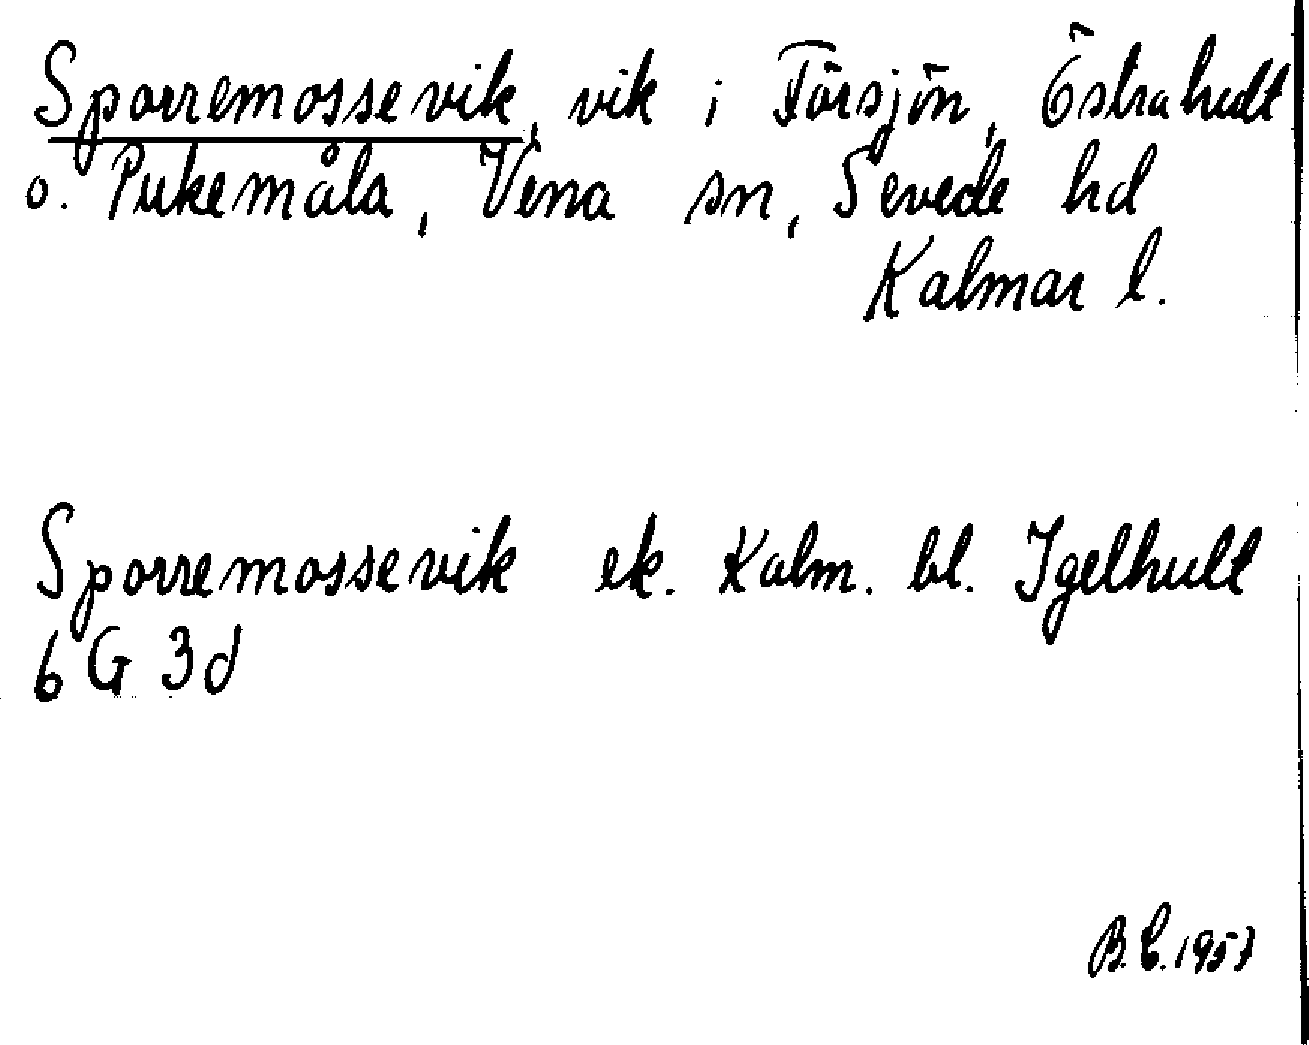 Sporremossevik, vik i Försjön, Östrahult
o. Pukemåla, Vena sn, Sevede hd
Kalmar l.
Sporremossevik ek. Kalm. bl. Igelhult
6 G 3d
B.C. 1957